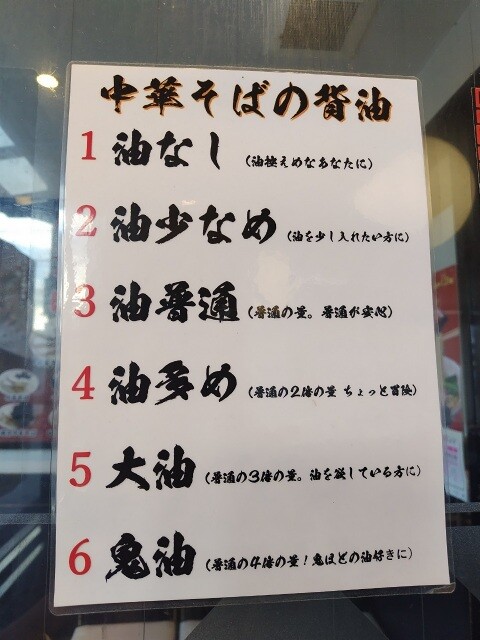 中華そばの背油
1 油なし (油控えめなあなたに)
2 油少なめ (油を少し入れたい方に)
3 油普通 (普通の量。普通が安心)
4 油多め (普通の2倍の量 ちょっと冒険)
5 大油 (普通の3倍の量。油を欲している方に)
6 鬼油 (普通の4倍の量!鬼ほどの油好きに)